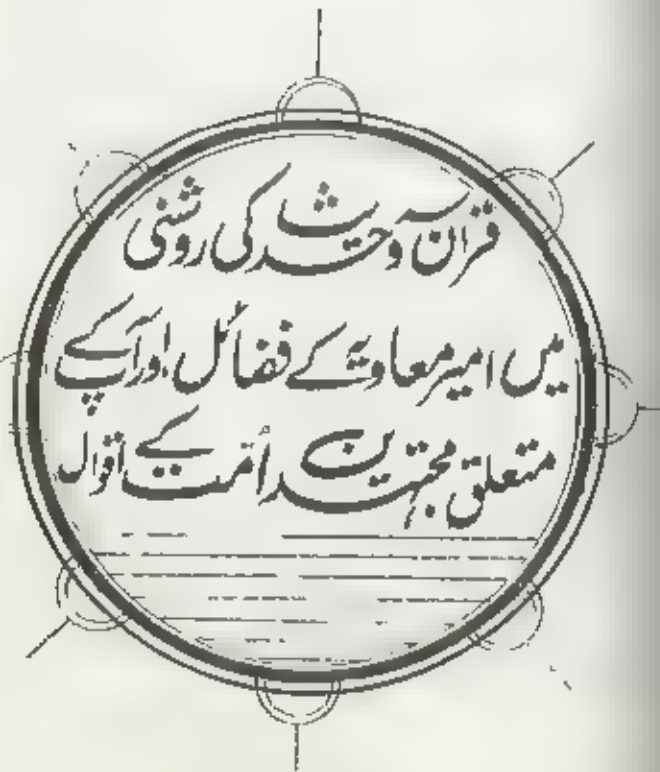 قرآن و حدیث کی روشنی
میں امیر معاویہ کے فضائل اور آپ کے
متعلق مجتہدین اُمت کے اقوال